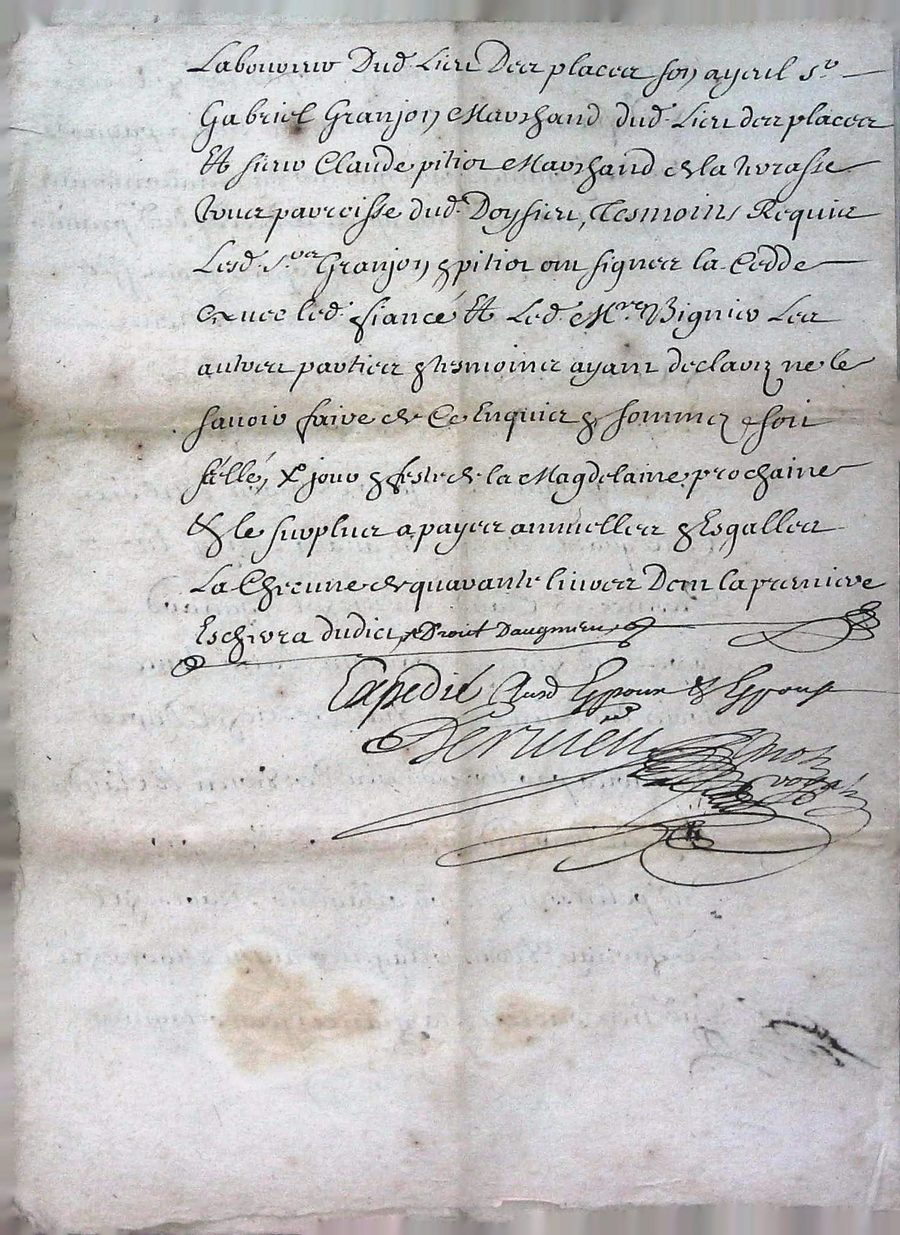 Laboureur dud. Lieu des places son ayeul Sr
Gabriel Granjon Marchand dud. Lieu des places
Et sieur Claude pitiot Marchand de la
tous parroisse dud. Doysieu, Tesmoins Requis
Lesd. Srs Granjon & pitiot ont signez la Cedde
avec led. fiancé Et Led. Mre Vignier Les
autres parties & tesmoins ayant declaré ne le
savoir faire de Ce Enquis & sommez & soit
séllé, jour & feste de la Magdelaine prochaine
& le surplus a payes annuelles & Esgalles
La Checune de quarante livres Dont la premiere
Eschera dudict, Droict Daugmen
Expedié Ausd Espoux & Espouse
not